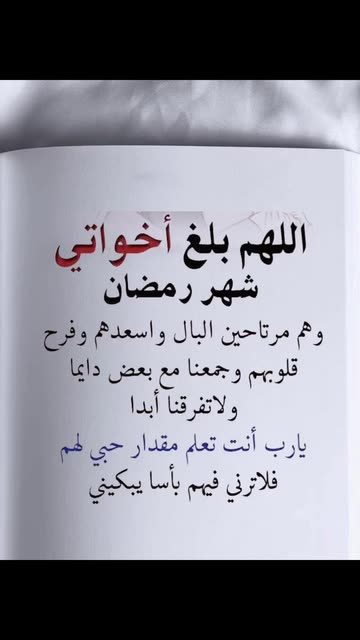 اللهم بلغ أخواتي
شهر رمضان
وهم مرتاحين البال واسعدهم وفرح
قلوبهم وجمعنا مع بعض دايما
ولاتفرقنا أبدا
يارب أنت تعلم مقدار حبي لهم
فلاترني فيهم بأسا يبكيني